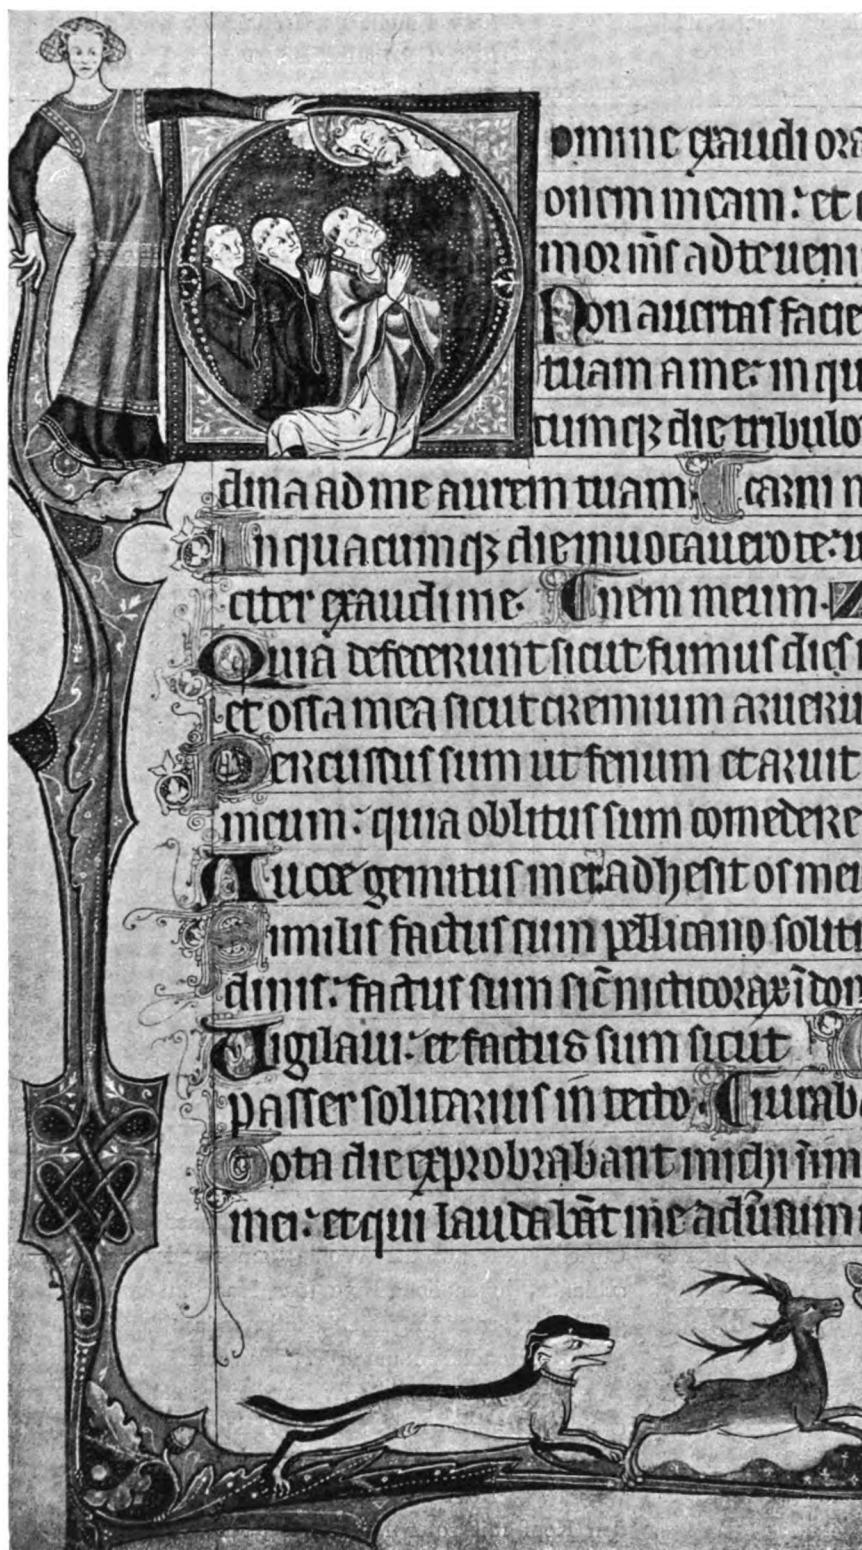 Domine exaudi ora
onem meam: et
mor m̄s ad te ueni
Non auertas facie
tuam a me: in qu
cumqꝫ die tribulo
clina ad me aurem tuam ⸿ carni m
In quacumqꝫ die inuocauero te: u
citer exaudi me. ⸿ nem meum.
Quia defecerunt sicut fumus dies
et ossa mea sicut cremium arueru
Percussus sum ut fenum et aruit
meum: quia oblitus sum comedere
A uoce gemitus mei: adhesit os mei
Similis factus sum pellicano solit
dinis: factus sum sic̄ nicticorax ī dom
Vigilaui: et factus sum sicut
passer solitarius in tecto. ⸿ iurab
Tota die exprobrabant michi inim
mei: et qui laudabāt me adu̓sum